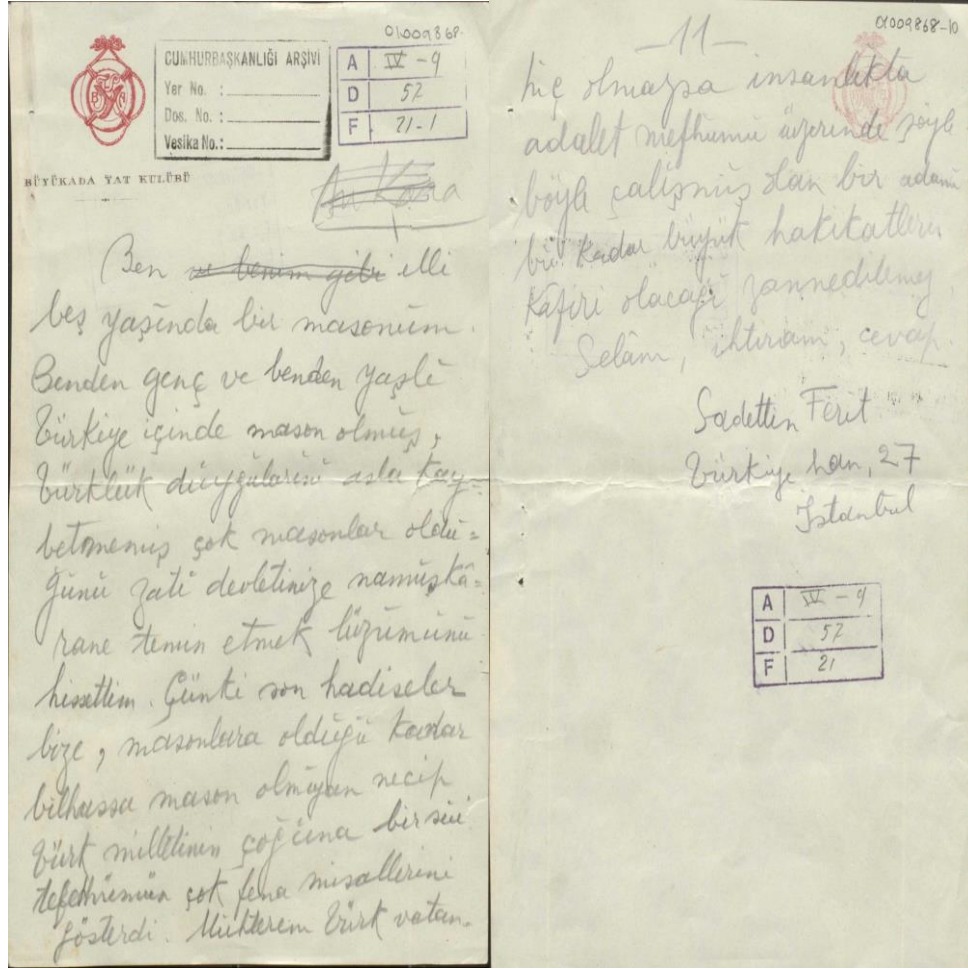 01009868.
CUMHURBAŞKANLIĞI ARŞİVİ
Yer No. :
Dos. No. :
Vesika No.:
A IV - 9
D 52
F 21-1
BÜYÜKADA YAT KULÜBÜ
Ankara
Ben ve benim gibi elli
beş yaşında bir masonum.
Benden genç ve benden yaşlı
Türkiye içinde mason olmuş,
Türklük duygularını asla kay=
betmemiş çok masonlar oldu=
ğunu zati devletinize namuskâ=
rane temin etmek lüzumunu
hissettim. Çünki son hadiseler
bize, masonlara olduğu kadar
bilhassa mason olmıyan necip
Türk milletinin çoğuna bir sui
tefehhümün çok fena misallerini
gösterdi. Muhterem Türk vatan-
01009868-10
—11—
hiç olmazsa insanlıkta
adalet mefhumu üzerinde şöyle
böyle çalışmış olan bir adamın
bu kadar büyük hakikatlerin
kâfiri olacağı zannedilemez.
Selâm, ihtiram, cevap.
Sadettin Ferit
Türkiye han, 27
İstanbul
A IV - 9
D 52
F 21